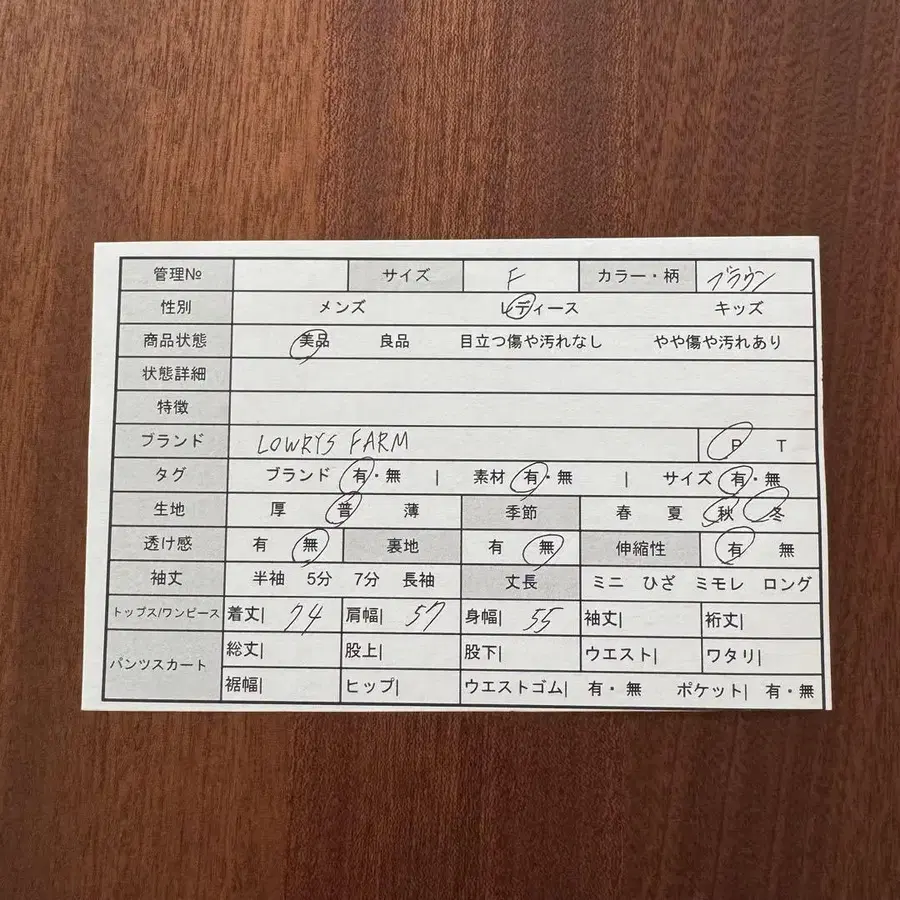 管理№ サイズ F カラー・柄 ブラウン
性別 メンズ レディース キッズ
商品状態 美品 良品 目立つ傷や汚れなし やや傷や汚れあり
状態詳細
特徴
ブランド LOWRYS FARM P T
タグ ブランド 有・無 | 素材 有・無 | サイズ 有・無
生地 厚 普 薄 季節 春 夏 秋 冬
透け感 有 無 裏地 有 無 伸縮性 有 無
袖丈 半袖 5分 7分 長袖 丈長 ミニ ひざ ミモレ ロング
トップス/ワンピース 着丈| 74 肩幅| 57 身幅| 55 袖丈| 裄丈|
パンツスカート 総丈| 股上| 股下| ウエスト| ワタリ|
裾幅| ヒップ| ウエストゴム| 有・無 ポケット| 有・無